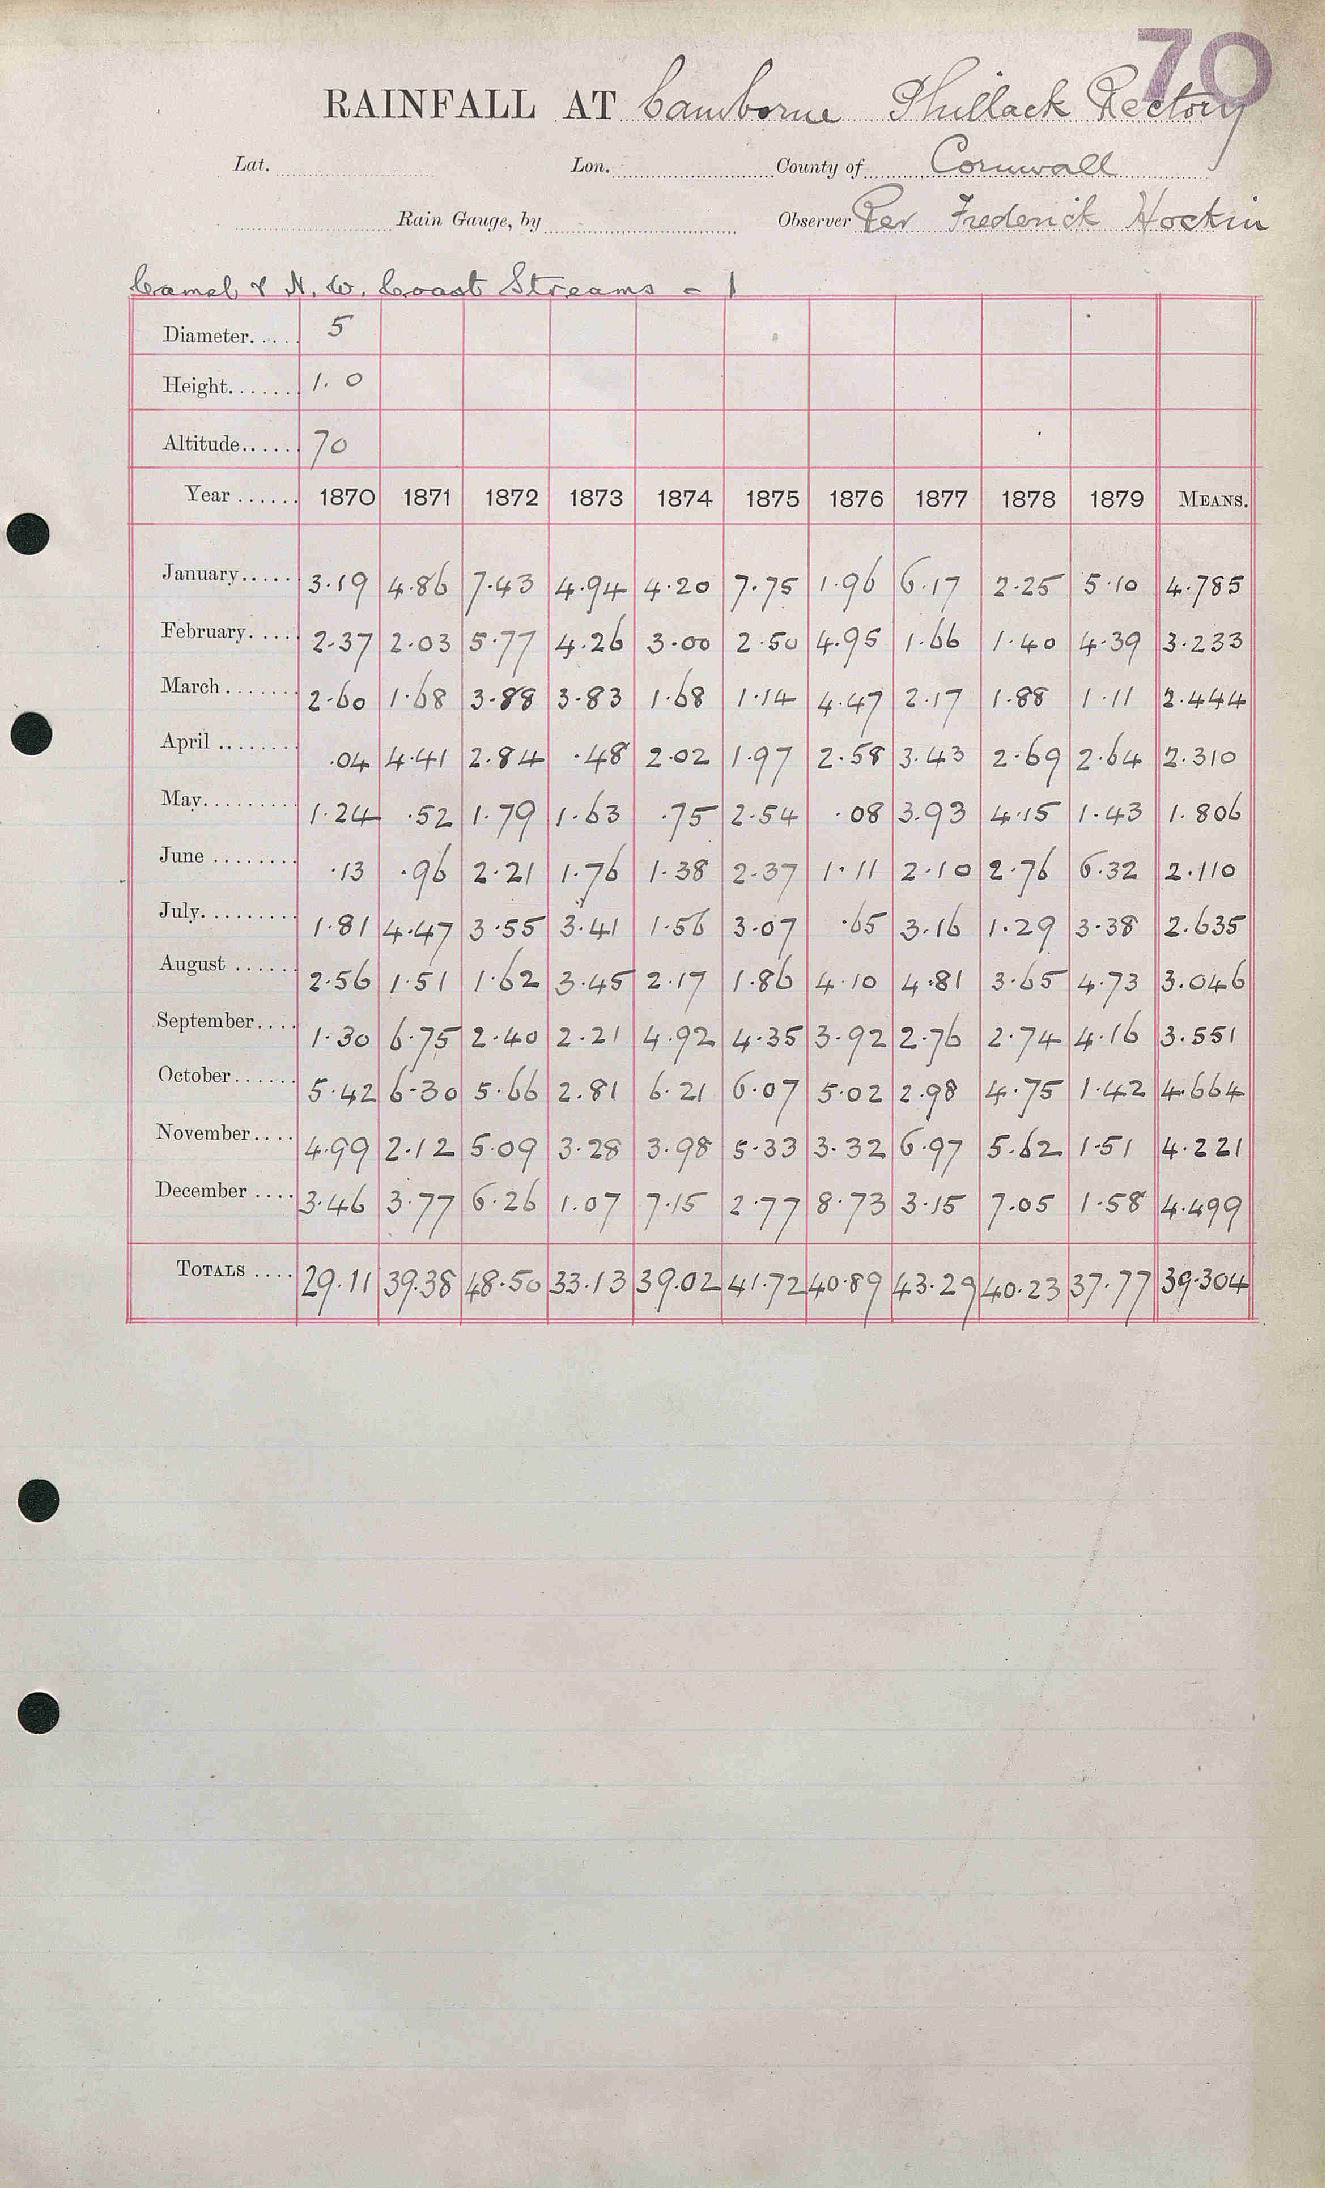 70
RAINFALL AT Camborne Phillack Rectory
Lat. Lon. County of Cornwall
Rain Gauge, by Observer Rev Frederick Hockin
Camel & N. W. Coast Streams - 1
Diameter..... 5
Height....... 1.0
Altitude...... 70
Year ...... 1870 1871 1872 1873 1874 1875 1876 1877 1878 1879 MEANS.
January...... 3.19 4.86 7.43 4.94 4.20 7.75 1.96 6.17 2.25 5.10 4.785
February..... 2.37 2.03 5.77 4.26 3.00 2.50 4.95 1.66 1.40 4.39 3.233
March ....... 2.60 1.68 3.88 3.83 1.68 1.14 4.47 2.17 1.88 1.11 2.444
April ........ .04 4.41 2.84 .48 2.02 1.97 2.58 3.43 2.69 2.64 2.310
May......... 1.24 .52 1.79 1.63 .75 2.54 .08 3.93 4.15 1.43 1.806
June ........ .13 .96 2.21 1.76 1.38 2.37 1.11 2.10 2.76 6.32 2.110
July......... 1.81 4.47 3.55 3.41 1.56 3.07 .65 3.16 1.29 3.38 2.635
August ...... 2.56 1.51 1.62 3.45 2.17 1.86 4.10 4.81 3.65 4.73 3.046
September.... 1.30 6.75 2.40 2.21 4.92 4.35 3.92 2.76 2.74 4.16 3.551
October...... 5.42 6.30 5.66 2.81 6.21 6.07 5.02 2.98 4.75 1.42 4.664
November.... 4.99 2.12 5.09 3.28 3.98 5.33 3.32 6.97 5.62 1.51 4.221
December .... 3.46 3.77 6.26 1.07 7.15 2.77 8.73 3.15 7.05 1.58 4.499
TOTALS .... 29.11 39.38 48.50 33.13 39.02 41.72 40.89 43.29 40.23 37.77 39.304